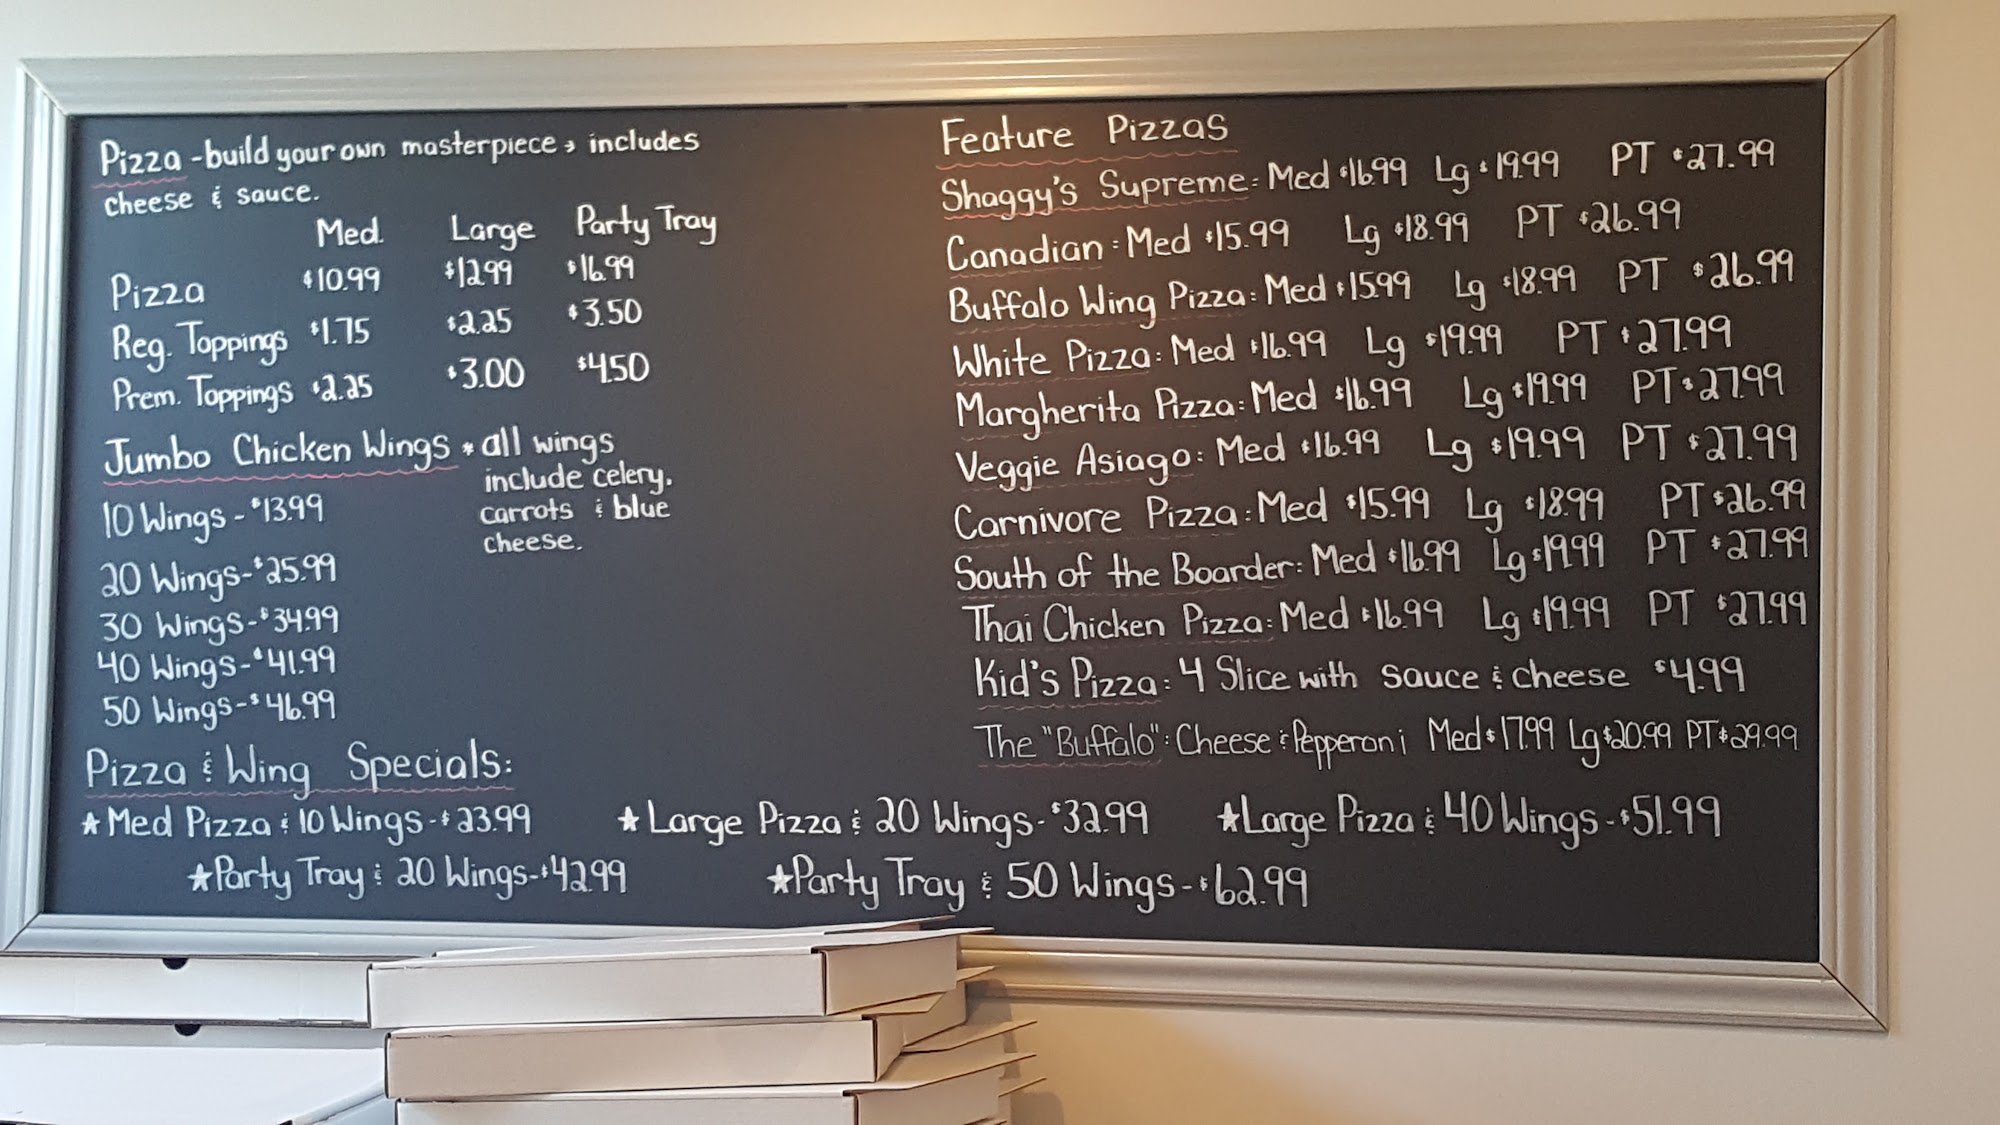 Pizza - build your own masterpiece → includes
cheese & sauce.
Med. Large Party Tray
Pizza $10.99 $12.99 $16.99
Reg. Toppings $1.75 $2.25 $3.50
Prem. Toppings $2.25 $3.00 $4.50
Jumbo Chicken Wings * all wings
include celery,
carrots & blue
cheese.
10 Wings - $13.99
20 Wings - $25.99
30 Wings - $34.99
40 Wings - $41.99
50 Wings - $46.99
Feature Pizzas
Shaggy's Supreme: Med $16.99 Lg $19.99 PT $27.99
Canadian: Med $15.99 Lg $18.99 PT $26.99
Buffalo Wing Pizza: Med $15.99 Lg $18.99 PT $26.99
White Pizza: Med $16.99 Lg $19.99 PT $27.99
Margherita Pizza: Med $16.99 Lg $19.99 PT $27.99
Veggie Asiago: Med $16.99 Lg $19.99 PT $27.99
Carnivore Pizza: Med $15.99 Lg $18.99 PT $26.99
South of the Boarder: Med $16.99 Lg $19.99 PT $27.99
Thai Chicken Pizza: Med $16.99 Lg $19.99 PT $27.99
Kid's Pizza: 4 Slice with sauce & cheese $4.99
The "Buffalo": Cheese & Pepperoni Med $17.99 Lg $20.99 PT $29.99
Pizza & Wing Specials:
★ Med Pizza & 10 Wings - $23.99 ★ Large Pizza & 20 Wings - $32.99 ★ Large Pizza & 40 Wings - $51.99
★ Party Tray & 20 Wings - $42.99 ★ Party Tray & 50 Wings - $62.99